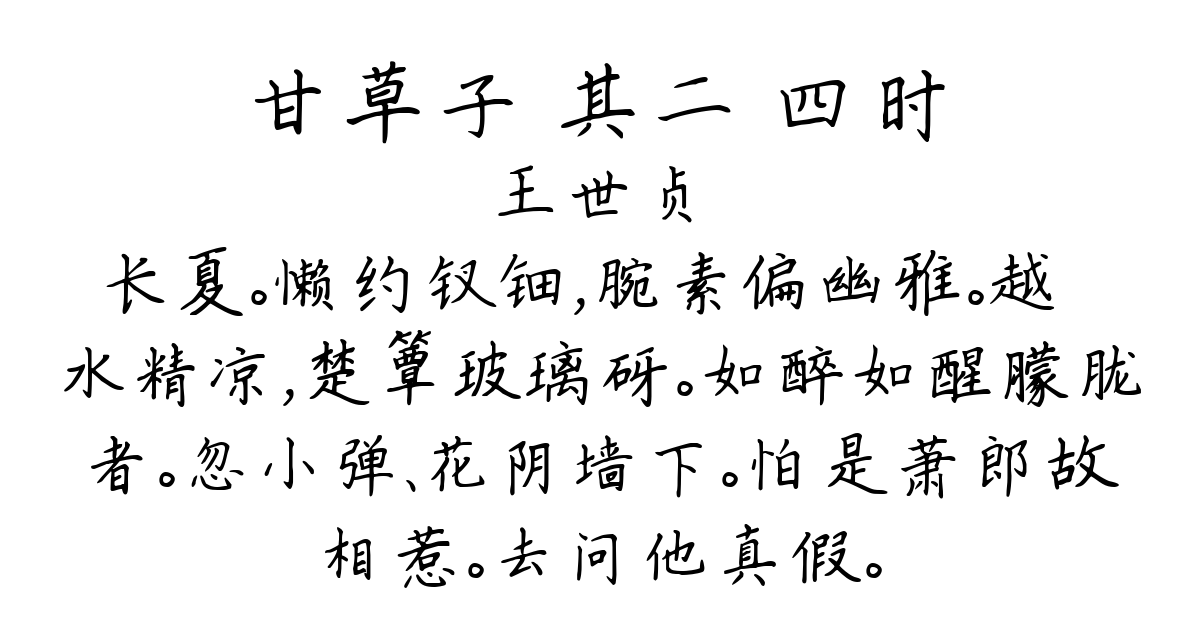 甘草子 其二 四时
王世贞
长夏。懒约钗钿,腕素偏幽雅。越
水精凉,楚簟玻璃砑。如醉如醒朦胧
者。忽小弹、花阴墙下。怕是萧郎故
相惹。去问他真假。